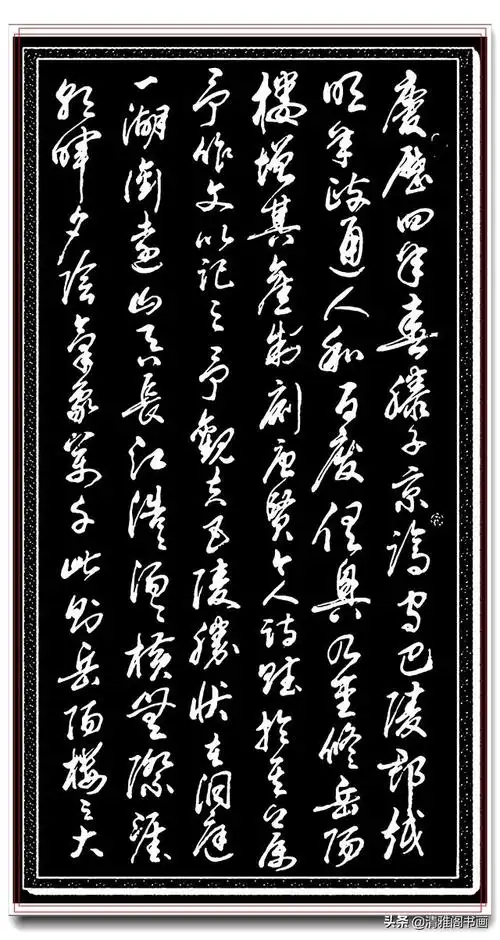 慶歷四年春滕子京謫守巴陵郡越
明年政通人和百廢俱興乃重修岳陽
樓增其舊制刻唐賢今人詩賦於其上屬
予作文以記之予觀夫巴陵勝狀在洞庭
一湖銜遠山吞長江浩浩湯湯橫無際涯
朝暉夕陰氣象萬千此則岳陽樓之大
头条 @清雅阁书画